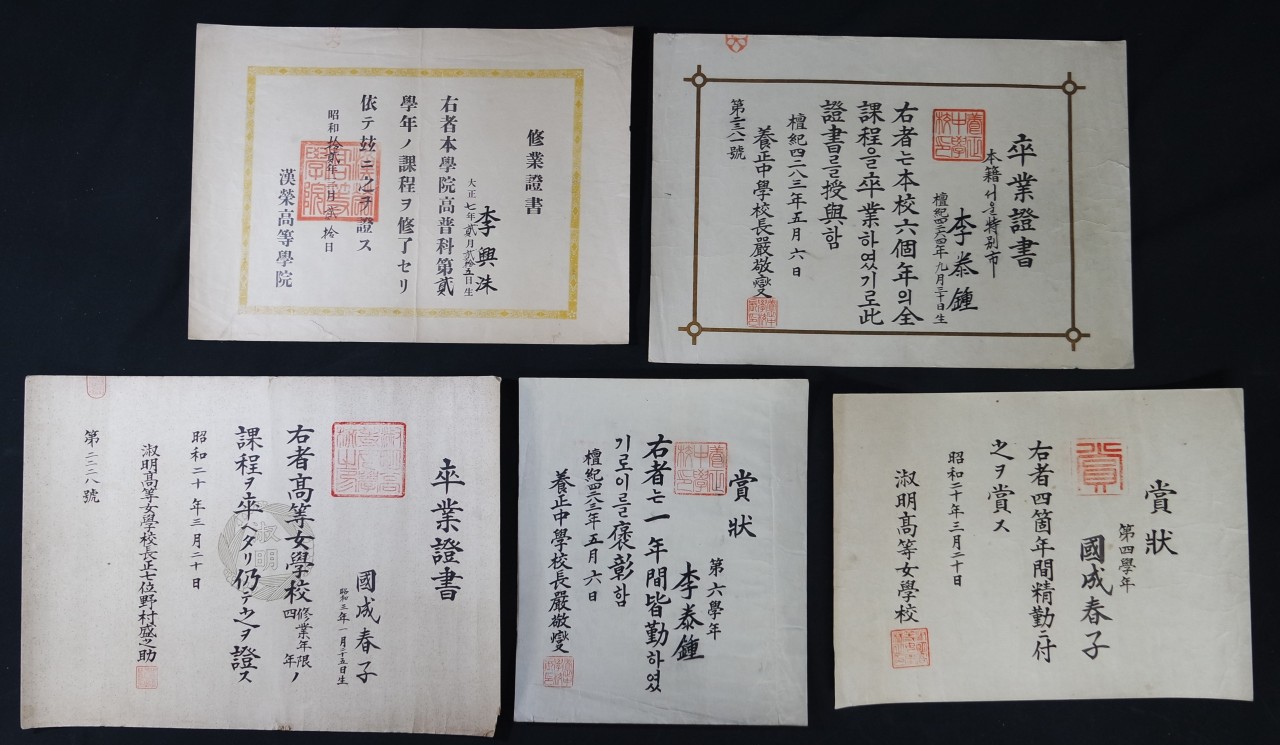 修業證書
李興洙
大正七年貳月貳拾五日生
右者本學院高普科第貳
學年ノ課程ヲ修了セリ
依テ玆ニ之ヲ證ス
昭和拾貳年 月貳拾日
漢榮高等學院
卒業證書
本籍서울特別市
李泰鍾
檀紀四二六四年九月三十日生
右者는本校六個年의全
課程을卒業하였기로此
證書를授與함
檀紀四二八三年五月六日
養正中學校長嚴敬燮
第二三八一號
養正中學校印
卒業證書
國成春子
昭和三年一月二十五日生
右者高等女學校修業年限四年ノ
課程ヲ卒ヘタリ仍テ之ヲ證ス
昭和二十年三月二十日
淑明高等女學校長正七位野村盛之助
第二二二八號
淑明
賞狀
第六學年
李泰鍾
右者는一年間皆勤하였
기로이를褒彰함
檀紀四二八三年五月六日
養正中學校長嚴敬燮
養正中學校印
賞狀
第四學年
國成春子
右者四箇年間精勤ニ付
之ヲ賞ス
昭和二十年三月二十日
淑明高等女學校
賞